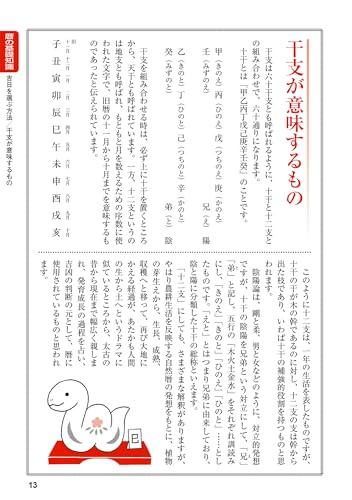 干支が意味するもの
干支は六十干支とも呼ばれるように、十干と十二支と
の組み合わせで、六十通りになります。
十干とは「甲乙丙丁戊己庚辛壬癸」のことです。
甲(きのえ) 丙(ひのえ) 戊(つちのえ) 庚(かのえ)
壬(みずのえ) 兄(え) 陽
乙(きのと) 丁(ひのと) 己(つちのと) 辛(かのと)
癸(みずのと) 弟(と) 陰
干支を組み合わせる時は、必ず上に十干を置くところ
から、天干とも呼ばれています。一方、十二支というの
は地支とも呼ばれ、もともと月を数えるための序数に使
われた文字で、旧暦の十一月から十月までを意味するも
のであったと伝えられています。
旧 十一月 十二月 一月 二月 三月 四月 五月 六月 七月 八月 九月 十月
子 丑 寅 卯 辰 巳 午 未 申 酉 戌 亥
このように十二支は、一年の生活を表したものですが、
十干の干が木の幹であるのに対し、十二支の支は幹から
出た枝であり、いわば十干の補強的役割を持つものと思
われます。
陰陽論は、剛と柔、男と女などのように、対立的発想
ですが、十干の陰陽を兄弟という対立にして、「兄」
「弟」と記し、五行の「木火土金水」をそれぞれ訓読み
にし、「きのえ」「きのと」「ひのえ」「ひのと」……とし
たものです。「えと」とはつまり兄弟に由来しており、
陰と陽に分類した十干の総称といえます。
「十二支」にしても、さまざまな解釈がありますが、
やはり農耕生活を反映する自然暦の発想をもとに、植物
の芽生えから、生長、成熟、
収穫へと移って、再び大地に
かえる経過が、あたかも人間
の生から土へというドラマに
似ているところから、太古の
昔から現在まで幅広く親しま
れ、発育成長の過程を占い、
吉凶の判断の元として、暦に
使用されているものと思われ
巳
暦の基礎知識
吉日を選ぶ方法／干支が意味するもの
13